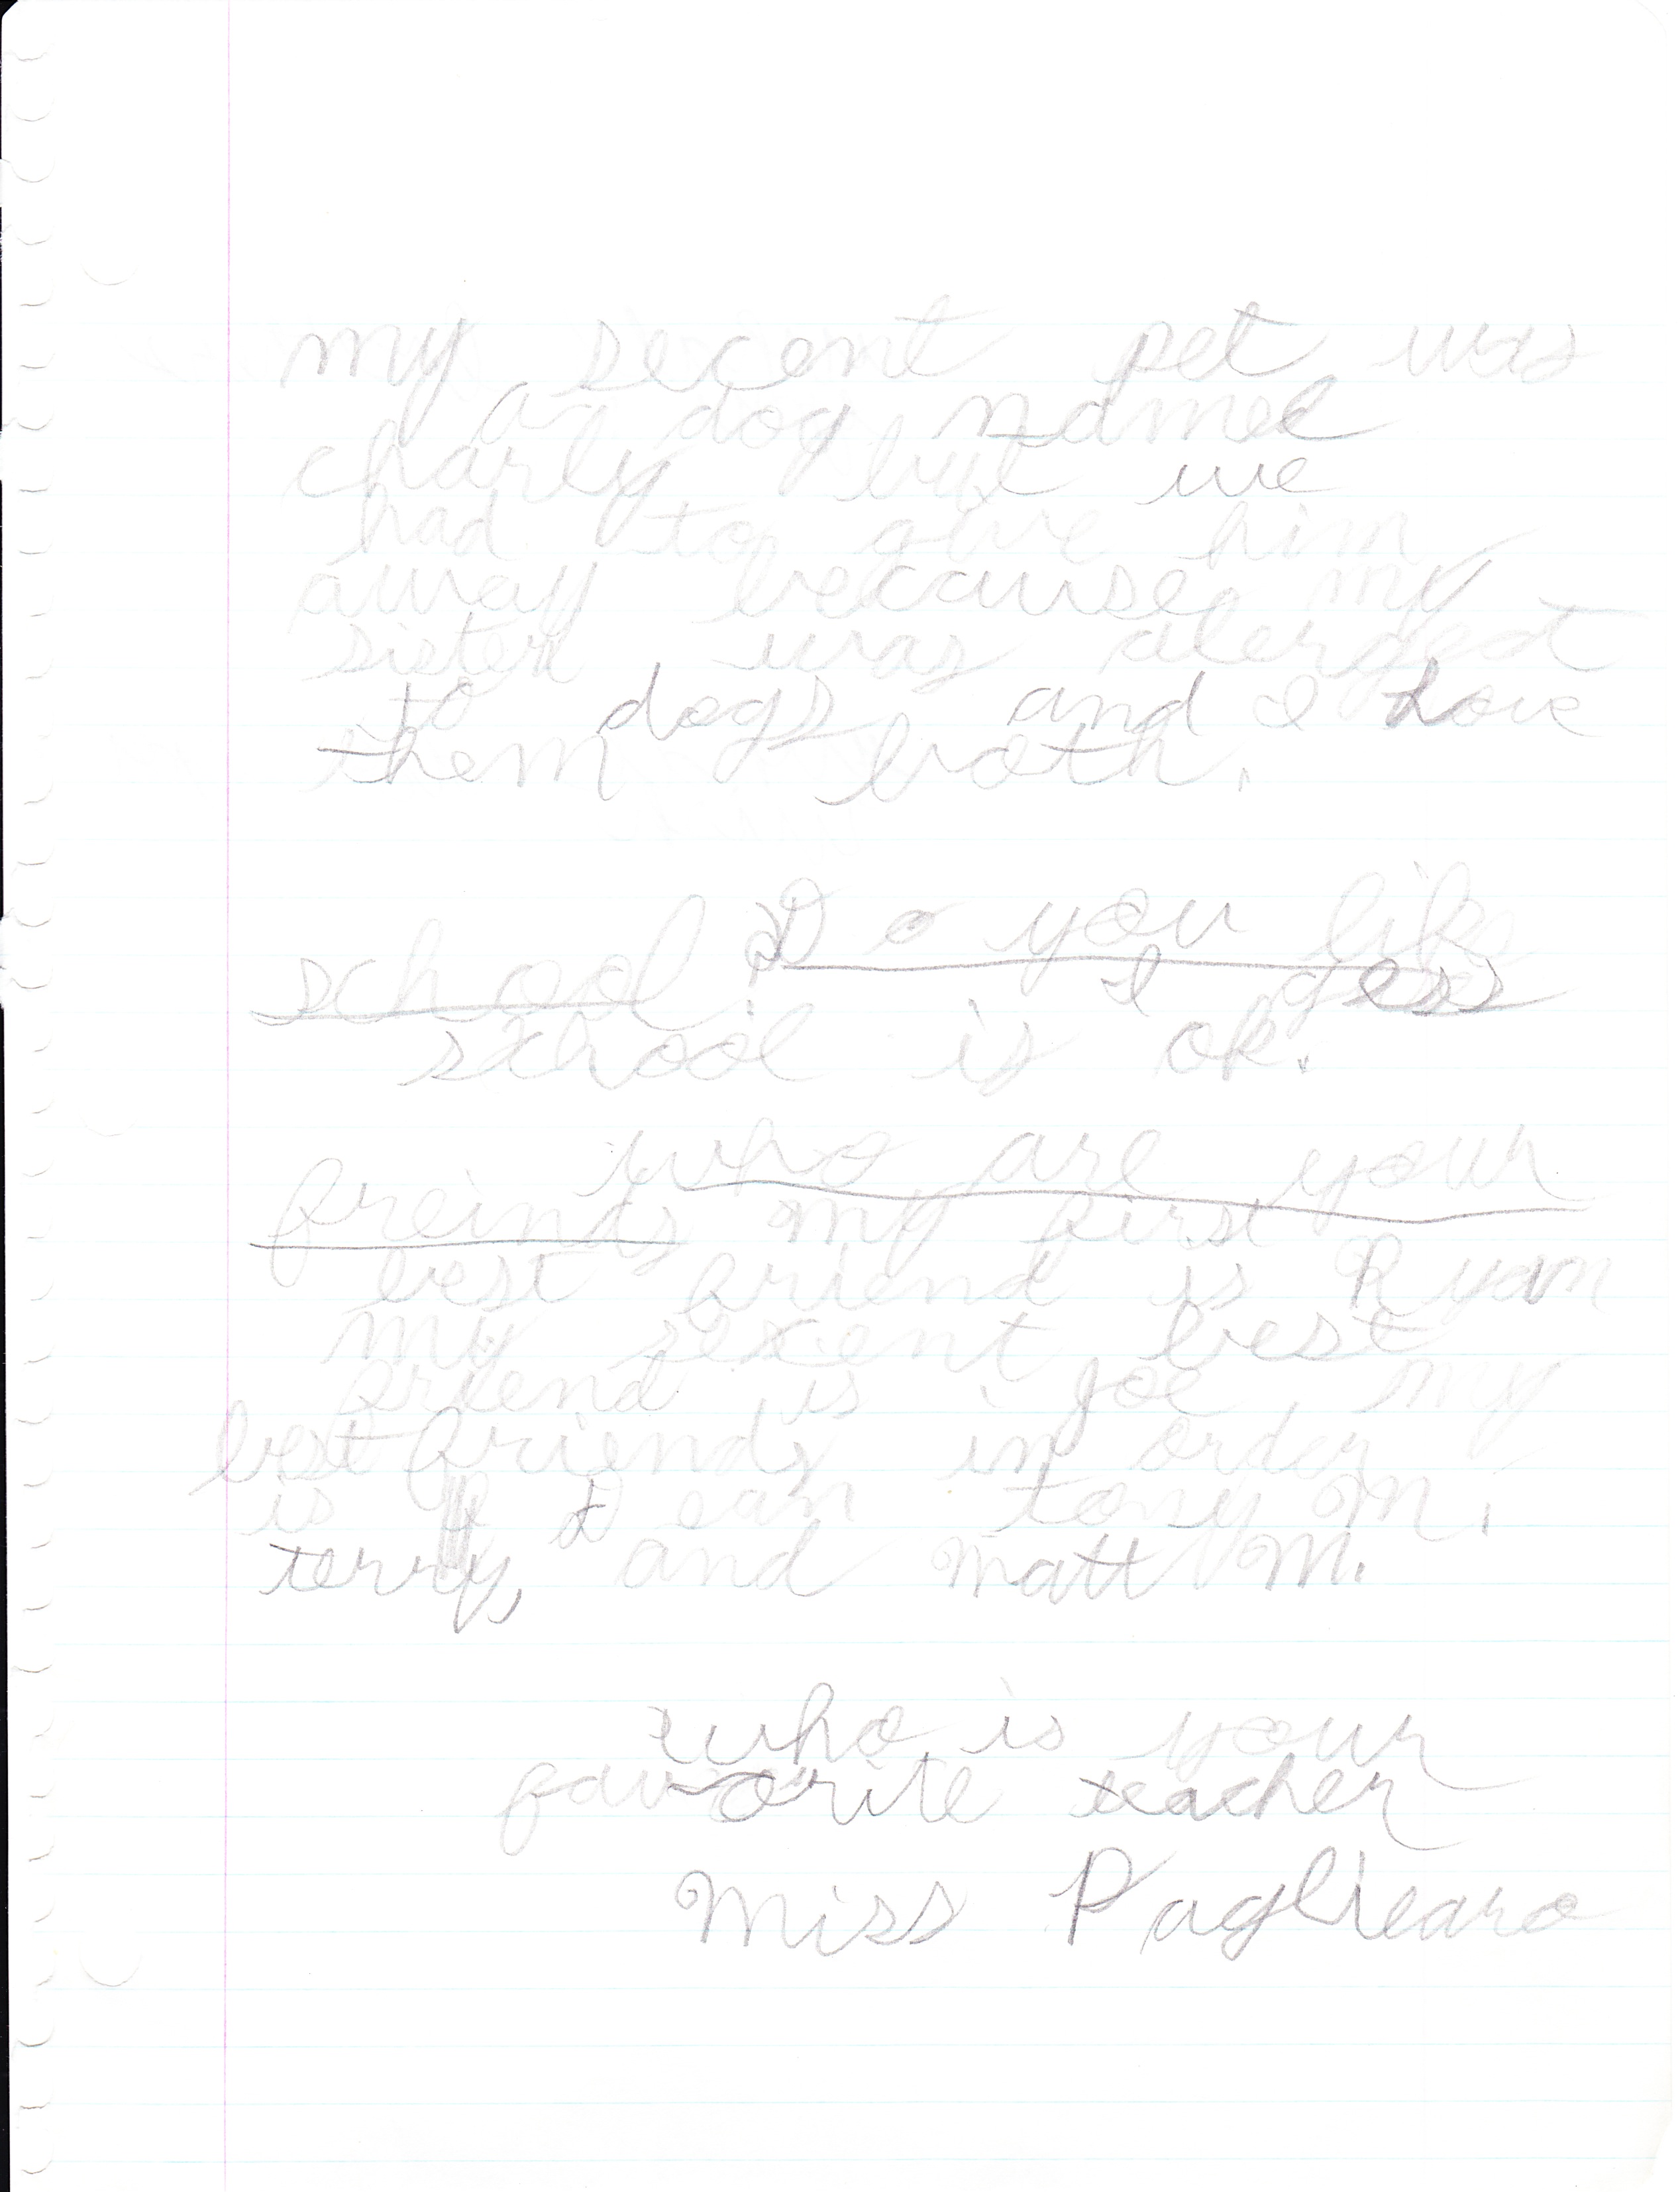 my secont pet was
a dog named
charly but we
had to give him
away because my
sister was alerget
to dogs and I Love
them both.
Do you like
school I gess
school is ok.
who are your
freinds my first
best friend is Ryan
my secent best
friend is joe my
best friends in order
is Dean tony M.
terry, and Matt M.
who is your
favorite teacher
Miss Pagliearo